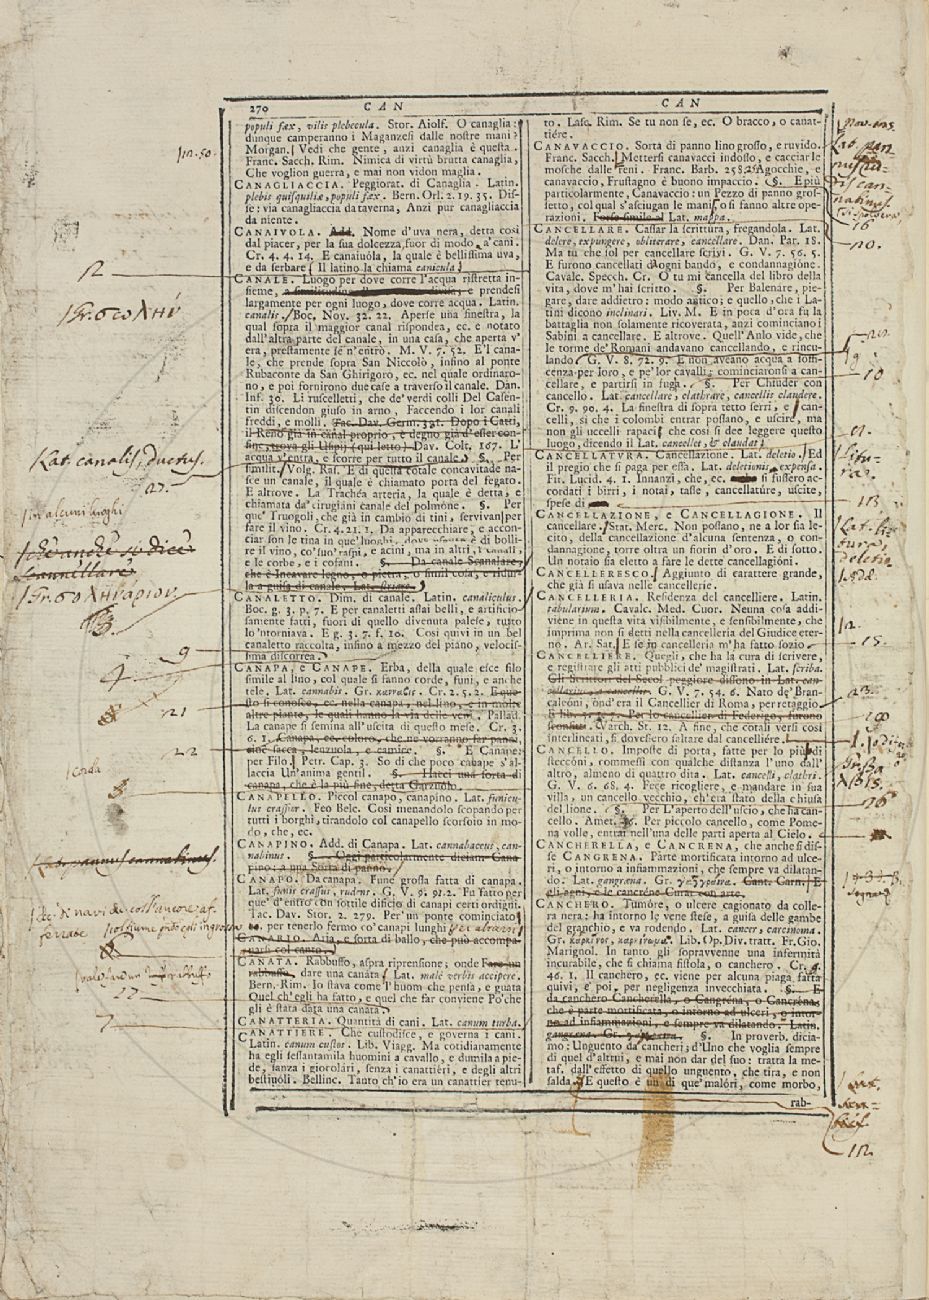 270
CAN
CAN
populi fæx, vilis plebecula. Stor. Aiolf. O canaglia:
dunque camperanno i Maganzesi dalle nostre mani?
Morgan. Vedi che gente, anzi canaglia è questa.
Franc. Sacch. Rim. Nimica di virtù brutta canaglia,
Che voglion guerra, e mai non vidon maglia.
CANAGLIACCIA. Peggiorat. di Canaglia. Latin.
plebis quisquiliæ, populi fæx. Bern. Orl. 2. 19. 35. Dis-
se: via canagliaccia da taverna, Anzi pur canagliaccia
da niente.
CANAIVOLA. Add. Nome d'uva nera, detta così
dal piacer, per la sua dolcezza, fuor di modo a' cani.
Cr. 4. 4. 14. E canaiuóla, la quale è bellissima uva,
e da serbare. Il latino la chiama canicula.
CANALE. Luogo per dove corre l'acqua ristretta in-
sieme, e prendesi
largamente per ogni luogo, dove corre acqua. Latin.
canalis. Boc. Nov. 32. 22. Aperse una finestra, la
qual sopra il maggior canal rispondea, ec. e notato
dall'altra parte del canale, in una casa, che aperta v'
era, prestamente se n'entrò. M. V. 7. 52. E'l cana-
le, che prende sopra San Niccolò, insino al ponte
Rubaconte da San Ghirigoro, ec. nel quale ordinaro-
no, e poi fornirono due case a traverso il canale. Dan.
Inf. 30. Li ruscelletti, che de' verdi colli Del Casen-
tin discendon giuso in arno, Faccendo i lor canali
freddi, e molli. Tac. Dav. Germ. 371. Dopo i Catti,
il Reno già in canal proprio, e degno già d'esser con-
fine, trova gli Usipii (qui letto) Dav. Colt. 167. L'
acqua v'entra, e scorre per tutto il canale. §. Per
similit. Volg. Ras. E di questa cotale concavitade na-
sce un canale, il quale è chiamato porta del fegato.
E altrove. La Trachéa arteria, la quale è detta, e
chiamata da' cirugiani canale del polmóne. §. Per
que' Truogoli, che già in cambio di tini, servivan per
fare il vino. Cr. 4. 21. 1. Da apparecchiare, e accon-
ciar son le tina in que' luoghi, dove usanza è di bolli-
re il vino, co' suo' raspi, e acini, ma in altri, i canali,
e le corbe, e i cofani. §. Da canale Scanalare,
che è Incavare legno, o pietra, o simil cosa, e ridur-
la a guisa di canale. Lat. striare.
CANALETTO. Dim. di canale. Latin. canaliculus.
Boc. g. 3. p. 7. E per canaletti assai belli, e artificio-
samente fatti, fuori di quello divenuta palese, tutto
lo 'ntorniava. E g. 3. 7. f. 10. Così quivi in un bel
canaletto raccolta, infino a mezzo del piano, velocis-
sima discorrea.
CANAPA, e CANAPE. Erba, della quale esce filo
simile al lino, col quale si fanno corde, funi, e anche
tele. Lat. cannabis. Gr. κάνναβις. Cr. 2. 5. 2. E que-
sto si conosce, ec. nella canapa, nel lino, e in molte
altre piante, le quali hanno la via delle veni. Pallad.
La canape si semina all'uscita di questo mese. Cr. 3.
6. 1. Canapa, ec. coloro, che ne vorranno far panni,
cioè sacca, lenzuola, e camice. §. E Canape;
per Filo. Petr. Cap. 3. So di che poco canape s'al-
laccia Un'anima gentil. §. Hacci una sorta di
canapa, che è la più fine, detta Garzuolo.
CANAPELLO. Piccol canapo, canapino. Lat. funicu-
lus crassior. Feo Belc. Così menandolo scopando per
tutti i borghi, tirandolo col canapello scorsoio in mo-
do, che, ec.
CANAPINO. Add. di Canapa. Lat. cannabaceus, can-
nabinus. §. Oggi particolarmente diciam Cana-
pino: a una Sorta di panno.
CANAPO. Da canapa. Fune grossa fatta di canapa.
Lat. funis crassus, rudens. G. V. 9. 91. 2. Fu fatto per
que' d'entro con sottile dificio di canapi certi ordigni.
Tac. Dav. Stor. 2. 279. Per un ponte cominciato
ec. per tenerlo fermo co' canapi lunghi
CANARIO. Aria, e sorta di ballo, che può accompa-
gnarsi col canto.
CANATA. Rabbuffo, aspra riprensione; onde Fare un
rabbuffo, dare una canáta. Lat. male verbis accipere.
Bern. Rim. Io stava come l'huom che pensa, e guata
Quel ch'egli ha fatto, e quel che far conviene Po'che
gli è stata data una canata.
CANATTERIA. Quantità di cani. Lat. canum turba.
CANATTIERE. Che custodisce, e governa i cani.
Latin. canum custos. Lib. Viagg. Ma cotidianamente
ha egli sessantamila huomini a cavallo, e dumila a pie-
de, sanza i giocolári, senza i canattiéri, e degli altri
bestiuóli. Bellinc. Tanto ch'io era un canattier tenu-
to. Lasc. Rim. Se tu non se, ec. O bracco, o canat-
tiére.
CANAVACCIO. Sorta di panno lino grosso, e ruvido.
Franc. Sacch. Mettersi canavacci indosso, e cacciar le
mosche dalle reni. Franc. Barb. 258. 2. Agocchie, e
canavaccio, Frustagno è buono impaccio. §. E più
particolarmente, Canavaccio: un Pezzo di panno gros-
setto, col qual s'asciugan le mani, o si fanno altre ope-
razioni. Forse simile al Lat. mappa.
CANCELLARE. Cassar la scrittura, fregandola. Lat.
delere, expungere, obliterare, cancellare. Dan. Par. 18.
Ma tu che sol per cancellare scrivi. G. V. 7. 56. 5.
E furono cancellati d'ogni bando, e condannagióne.
Cavalc. Specch. Cr. O tu mi cancella del libro della
vita, dove m'hai scritto. §. Per Balenáre, pie-
gare, dare addietro: modo antico; e quello, che i La-
tini dicono inclinari. Liv. M. E in poca d'ora fu la
battaglia non solamente ricoverata, anzi cominciano i
Sabini a cancellare. E altrove. Quell'Aulo vide, che
le torme de' Romani andavano cancellando, e rincu-
lando. G. V. 8. 72. 9. E non aveano acqua a soffi-
cenza per loro, e pe' lor cavalli: cominciaronsi a can-
cellare, e partirsi in fuga. §. Per Chiuder con
cancello. Lat. cancellare, clathrare, cancellis claudere.
Cr. 9. 90. 4. La finestra di sopra tetto serri, e can-
celli, sì che i colombi entrar possano, e uscire, ma
non gli uccelli rapaci, che così si dee leggere questo
luogo, dicendo il Lat. cancellet, & claudat.
CANCELLATVRA. Cancellazione. Lat. deletio. Ed
il pregio che si paga per essa. Lat. deletionis expensa.
Fir. Lucid. 4. 1. Innanzi, che, ec. si fussero ac-
cordati i birri, i notai, tasse, cancellature, uscite,
spese di
CANCELLAZIONE, e CANCELLAGIONE. Il
cancellare. Stat. Merc. Non possano, ne a lor sia le-
cito, della cancellazione d'alcuna sentenza, o con-
dannagione, torre oltra un fiorin d'oro. E di sotto.
Un notaio sia eletto a fare le dette cancellagióni.
CANCELLERESCO. Aggiunto di carattere grande,
che già si usava nelle cancellerie.
CANCELLERIA. Residenza del cancelliere. Latin.
tabularium. Cavalc. Med. Cuor. Neuna cosa addi-
viene in questa vita visibilmente, e sensibilmente, che
imprima non si detti nella cancelleria del Giudice eter-
no. Ar. Sat. E se in cancelleria m'ha fatto sozio
CANCELLIERE. Quegli, che ha la cura di scrivere,
e registrare gli atti pubblici de' magistrati. Lat. scriba.
Gli Scrittori del Secol peggiore dissono in Lat. can-
cellarius, a cancellis. G. V. 7. 54. 6. Nato de' Bran-
caleóni, ond'era il Cancellier di Roma, per retaggio
E lib. Per lo cancellier di Federigo, furono
Varch. St. 12. A fine, che cotali versi così
interlineati, si dovessero saltare dal cancelliére.
CANCELLO. Imposte di porta, fatte per lo più di
stecconi, commessi con qualche distanza l'uno dall'
altro, almeno di quattro dita. Lat. cancelli, clathri.
G. V. 6. 68. 4. Fece ricogliere, e mandare in sua
villa, un cancello vecchio, ch'era stato della chiusa
del lione. §. Per L'aperto dell'uscio, che ha can-
cello. Amet. 36. Per piccolo cancello, come Pome-
na volle, entrai nell'una delle parti aperta al Cielo.
CANCHERELLA, e CANCRENA, che anche si dis-
se CANGRENA. Parte mortificata intorno ad ulce-
ri, o intorno a infiammazioni, che sempre va dilatan-
do. Lat. gangræna. Gr. γάγγραινα. Cant. Carn. E
gli apri, e le cancréne Cura con arte.
CANCHERO. Tumóre, o ulcere cagionato da colle-
ra nera: ha intorno le vene stese, a guisa delle gambe
del granchio, e va rodendo. Lat. cancer, carcinoma.
Gr. καρκίνος, καρκίνωμα. Lib. Op. Div. tratt. Fr. Gio.
Marignol. In tanto gli sopravvenne una infermità
incurabile, che si chiama fistola, o canchero. Cr. 9.
46. 1. Il canchero, ec. viene per alcuna piaga fatta
quivi, e poi, per negligenza invecchiata. §. E
da canchero Cancherella, o Cangréna, o Cancréna:
che è parte mortificata, o intorno ad ulceri, o intor-
no ad infiammazioni, e sempre va dilatando. Latin.
gangræna. §. In proverb. dicia-
mo: Unguento da cancheri; d'Uno che voglia sempre
di quel d'altrui, e mai non dar del suo: tratta la me-
taf. dall'effetto di quello unguento, che tira, e non
salda. E questo è un di que' malóri, come morbo,
rab-
n. 50.
12
Gr. σωλήν
Lat. canalis, ductus.
27.
in alcuni luoghi
che anche si dice
Cannellare
Gr. σωληνάριον
9
4
21
22
corda
7
16
10.
9.
10
Litu-
ra.
13
Lat. li-
tura,
deletio
2.
15.
23.
18
26
12.